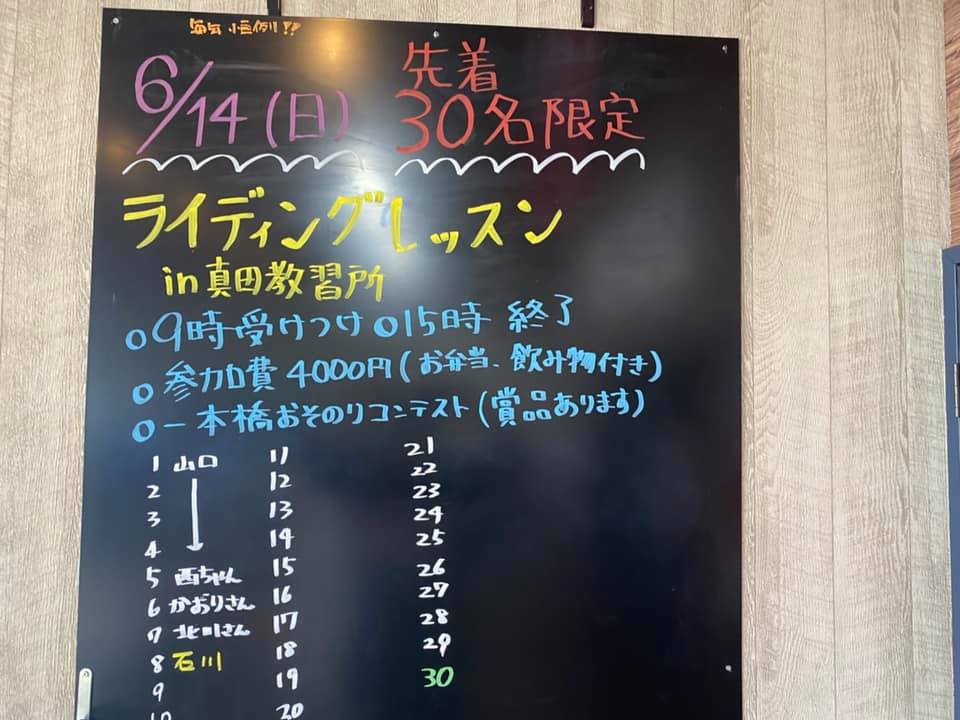 毎年恒例!!
6/14(日)
先着
30名限定
ライディングレッスン
in真田教習所
○9時受けつけ○15時 終了
○参加費4000円(お弁当、飲み物付き)
○一本橋おそのりコンテスト(賞品あります)
1 山口
2
3
4
5 西ちゃん
6 かおりさん
7 北川さん
8 石川
9
10
11
12
13
14
15
16
17
18
19
20
21
22
23
24
25
26
27
28
29
30